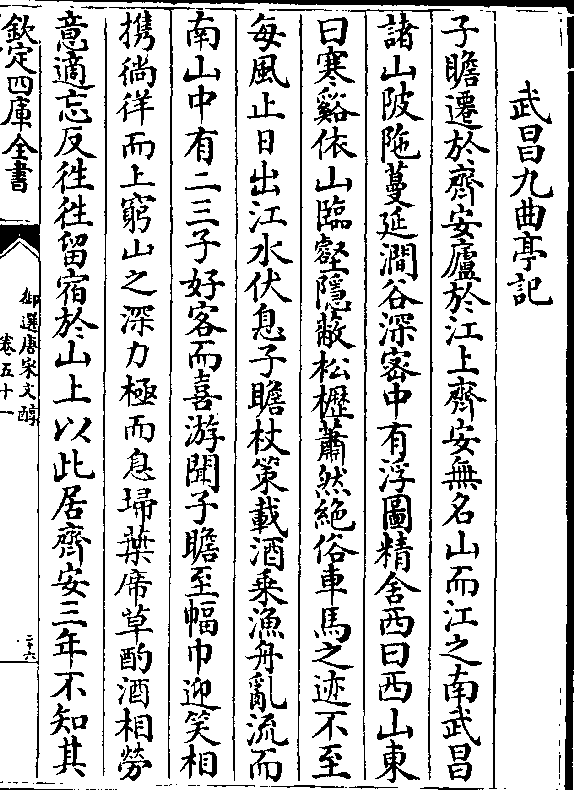 武昌九曲亭記
子瞻遷於齊安廬於江上齊安無名山而江之南武昌
諸山陂陁蔓延澗谷深宻中有浮圖精舍西曰西山東
曰寒谿依山臨壑隱蔽松櫪蕭然絶俗車馬之迹不至
每風止日出江水伏息子瞻杖策載酒乗漁舟亂流而
南山中有二三子好客而喜游聞子瞻至幅巾迎笑相
携徜徉而上窮山之深力極而息埽葉席草酌酒相勞
意適忘反徃徃留宿於山上以此居齊安三年不知其
欽定四庫全書
御選唐宋文醇
卷五十一
二十六